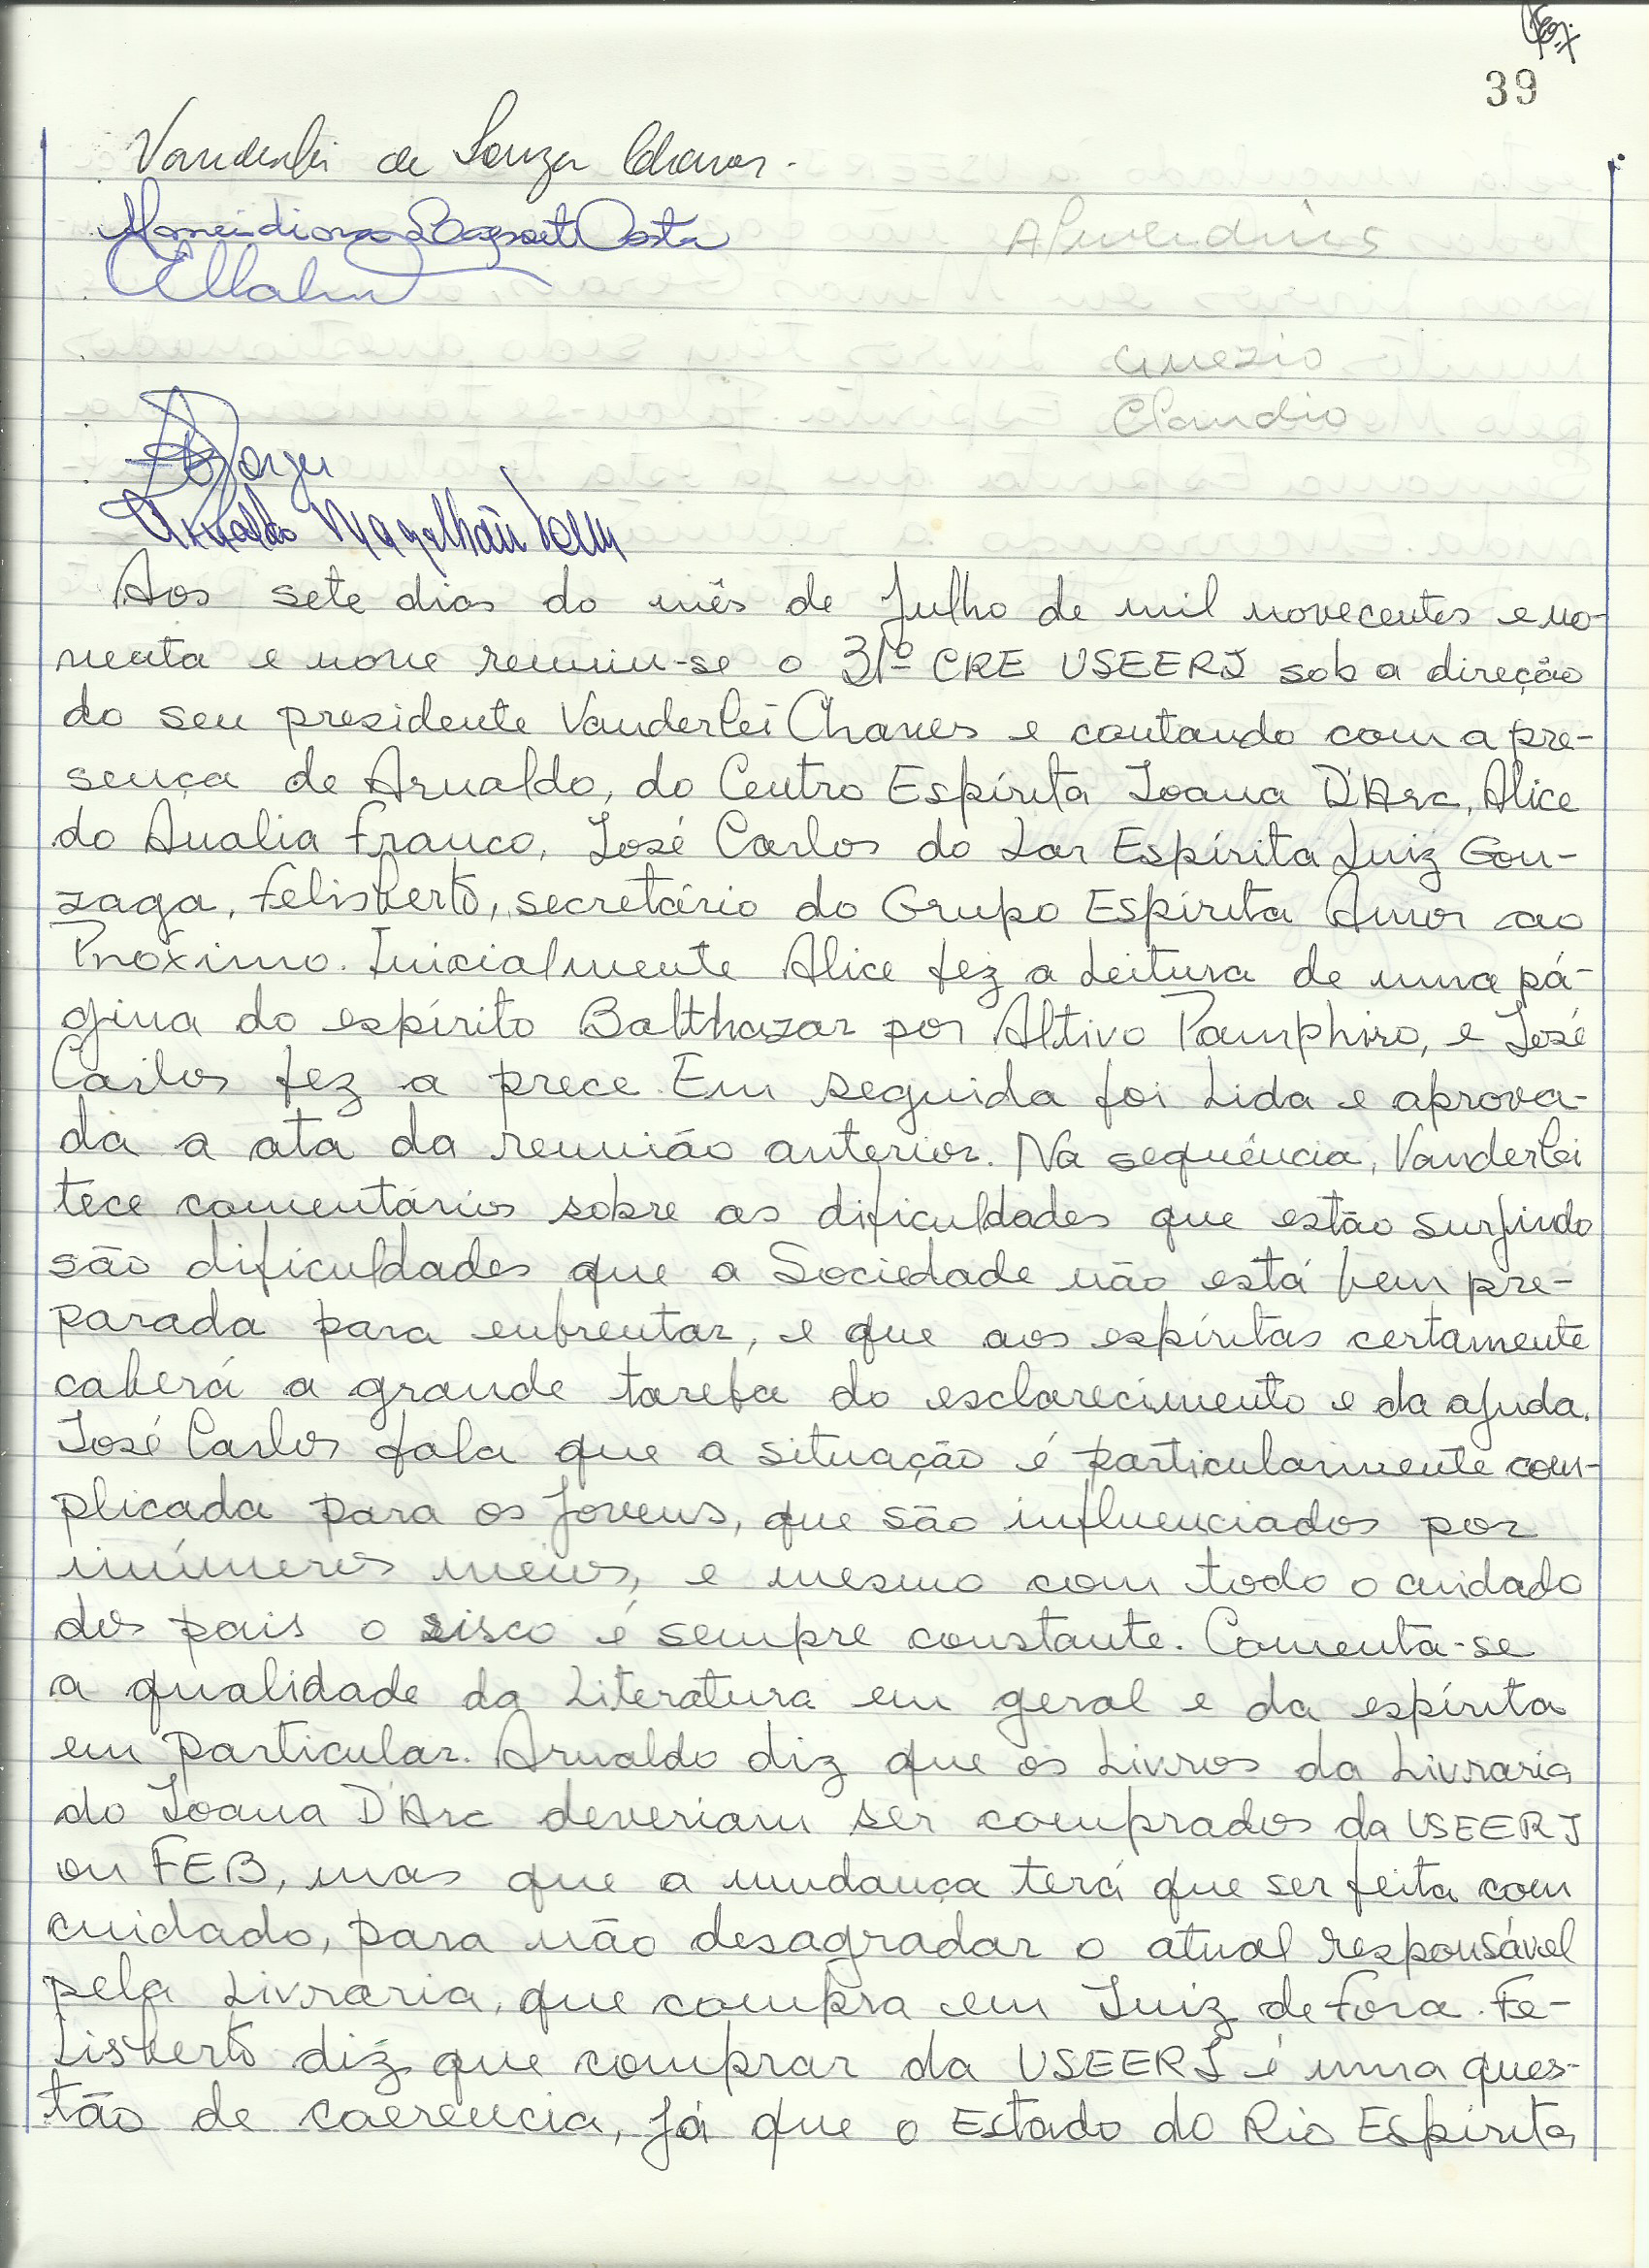 39
Vanderlei de Souza Chaves.
Costa
Almerdinis
Anezio
Claudio
Jorge
Arnaldo Magalhães
Aos sete dias do mês de julho de mil novecentos e no-
venta e nove reuniu-se o 31º CRE USEERJ sob a direção
do seu presidente Vanderlei Chaves e contando com a pre-
sença de Arnaldo, do Centro Espírita Joana D'Arc, Alice
do Analia Franco, José Carlos do Lar Espírita Luiz Gon-
zaga, Felisberto, secretário do Grupo Espírita Amor ao
Próximo. Inicialmente Alice fez a leitura de uma pá-
gina do espírito Balthazar por Altivo Pamphiro, e José
Carlos fez a prece. Em seguida foi lida e aprova-
da a ata da reunião anterior. Na sequência, Vanderlei
tece comentários sobre as dificuldades que estão surgindo
são dificuldades que a Sociedade não está bem pre-
parada para enfrentar, e que aos espíritas certamente
caberá a grande tarefa do esclarecimento e da ajuda.
José Carlos fala que a situação é particularmente com-
plicada para os jovens, que são influenciados por
inúmeros meios, e mesmo com todo o cuidado
dos pais o risco é sempre constante. Comenta-se
a qualidade da literatura em geral e da espírita
em particular. Arnaldo diz que os livros da livraria
do Joana D'Arc deveriam ser comprados da USEERJ
ou FEB, mas que a mudança terá que ser feita com
cuidado, para não desagradar o atual responsável
pela livraria, que compra em Juiz de Fora. Fe-
lisberto diz que comprar da USEERJ é uma ques-
tão de coerencia, já que o Estado do Rio Espírita